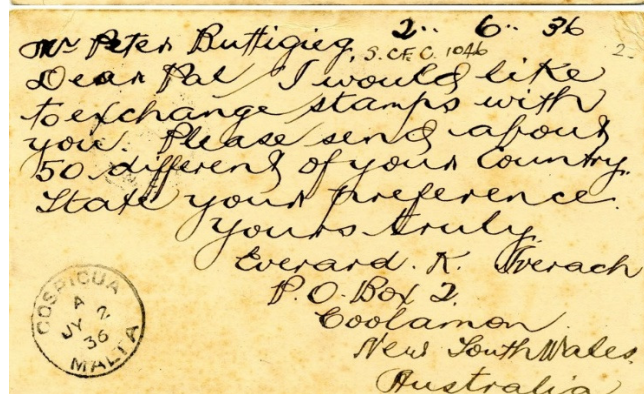 2·· 6·· 36
Mr Peter Buttigieg, S.C.F.C. 1046
Dear Pal I would like
to exchange stamps with
you. Please send about
50 different of your Country.
State your preference.
Yours truly.
Everard. K. Iverach
P.O. Box 2.
Coolamon.
New South Wales.
Australia
2.
COSPICUA
A
JY 2
36
MALTA